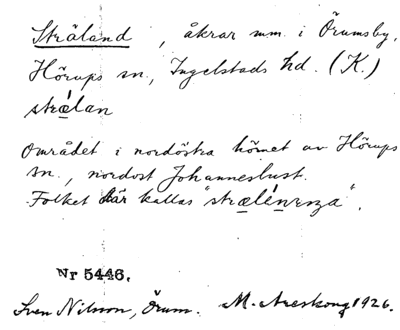 Stråland, åkrar m.m. i Örumsby,
Hörups sn., Ingelstads hd. (K.)
strǽlan
Området i nordöstra hörnet av Hörups
sn., nordost Johanneslust.
Folket där kallas "strælénᵰza".
Nr 5446.
Sven Nilsson, Örum. M. Areskoug 1926.